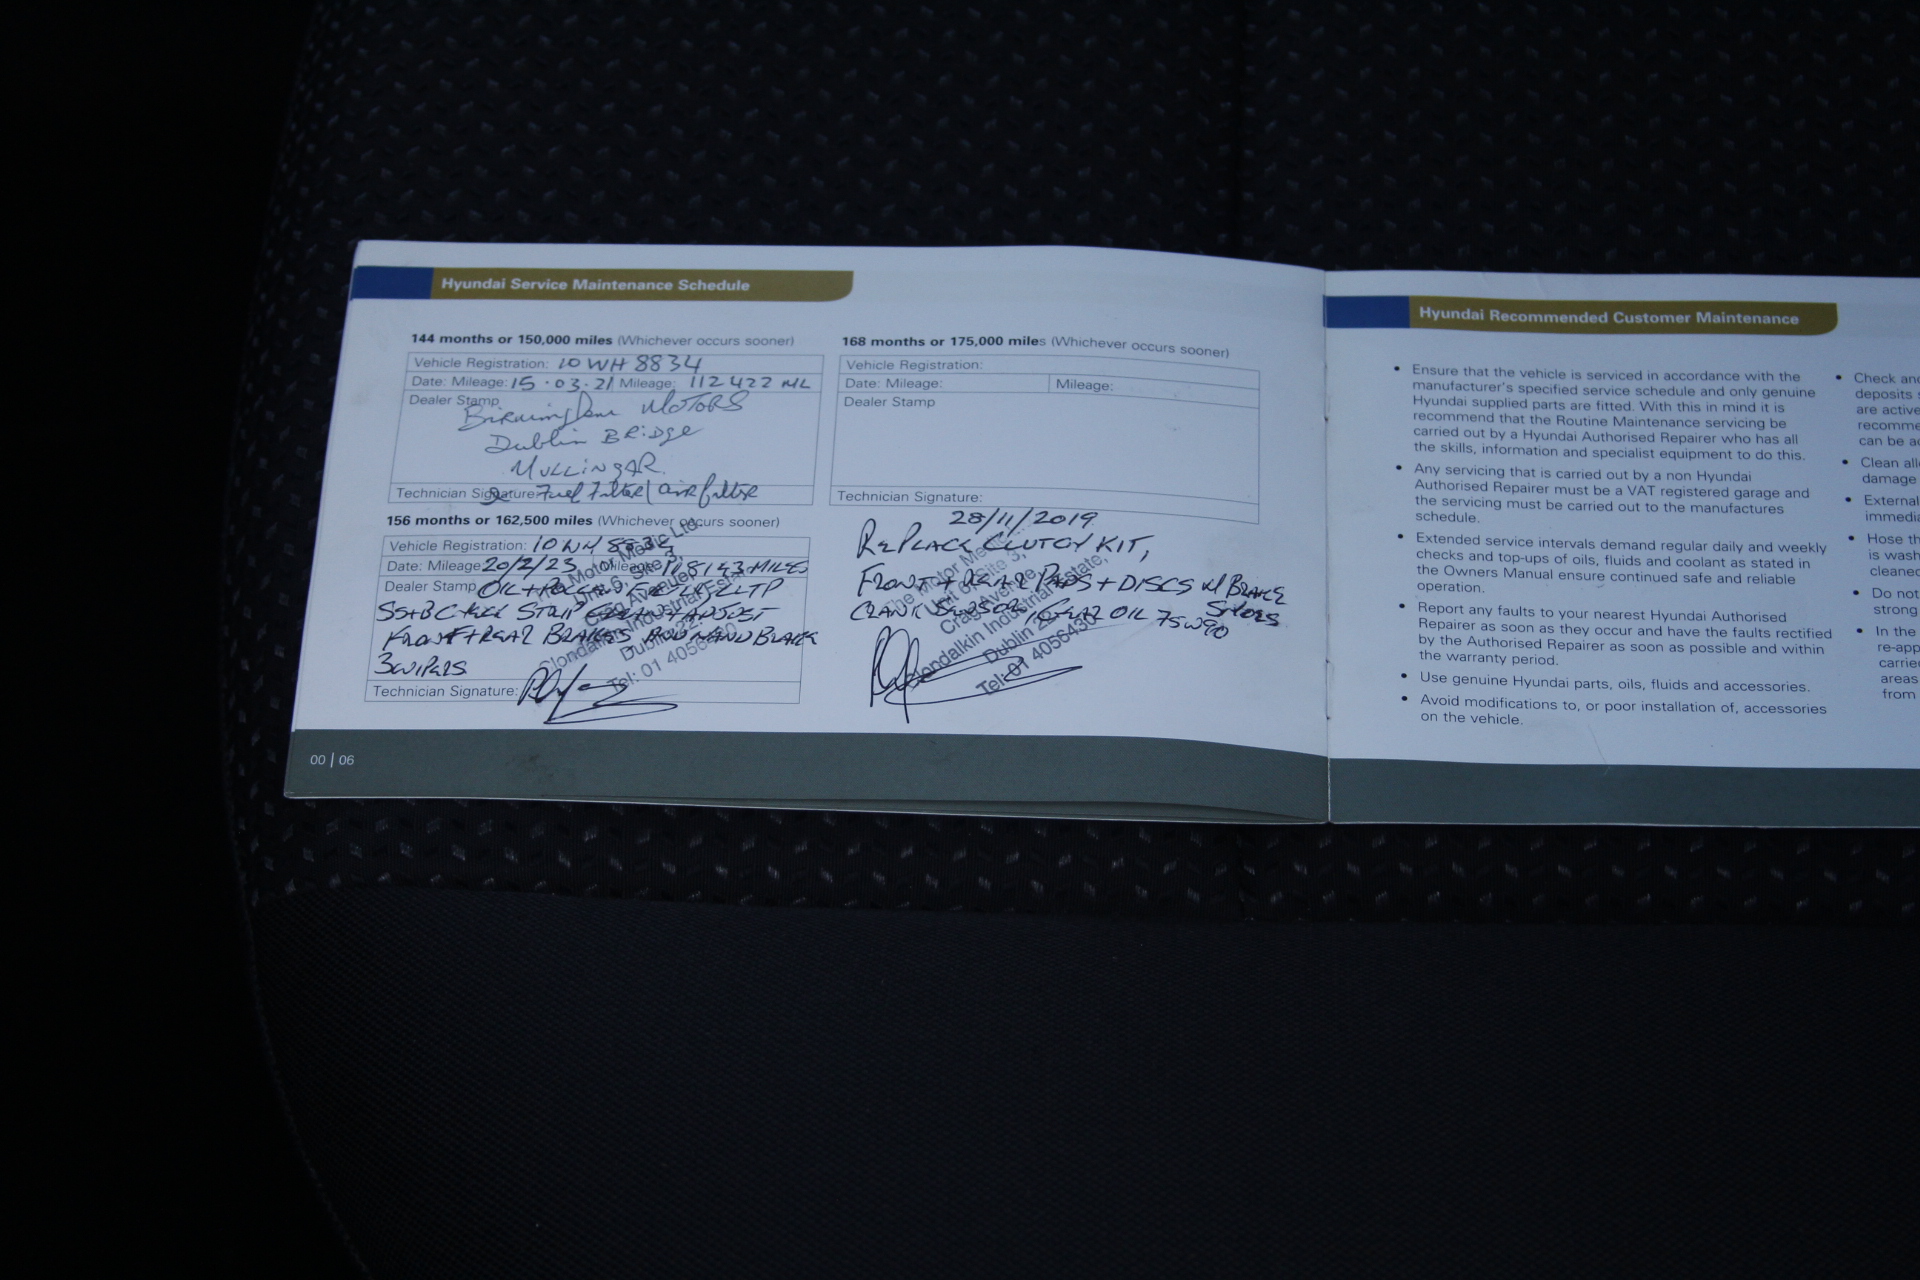 Hyundai Service Maintenance Schedule
144 months or 150,000 miles (Whichever occurs sooner)
Vehicle Registration: 10 WH 8834
Date: Mileage: 15.03.21 Mileage: 112422 ML
Dealer Stamp
Birmingham MOTORS
Dublin BRiDge
MULLiNgAR.
Technician Signature: Fuel Filter/ air filter
156 months or 162,500 miles (Whichever occurs sooner)
Vehicle Registration: 10 WH
Date: Mileage 20/2/23 Mileage: 118143 MILES
Dealer Stamp OIL +
STRIP + ADJUST
FRONT + REAR BRAKES HAND BRAKE
3 WIPERS
Technician Signature:
The Motor Medic Ltd.
Unit 6, Site 3,
Crag Avenue,
Clondalkin Industrial Estate,
Dublin 22.
Tel: 01 4056430
168 months or 175,000 miles (Whichever occurs sooner)
Vehicle Registration:
Date: Mileage: Mileage:
Dealer Stamp
Technician Signature:
28/11/2019
REPLACE CLUTCH KIT,
FRONT + REAR PADS + DISCS w/ BRAKE
CRANK GEAR OIL 75W90
The Motor Medic
Unit 6, Site 3,
Crag Avenue,
Clondalkin Industrial Estate,
Dublin 22.
Tel: 01 4056430
00 | 06
Hyundai Recommended Customer Maintenance
• Ensure that the vehicle is serviced in accordance with the
manufacturer's specified service schedule and only genuine
Hyundai supplied parts are fitted. With this in mind it is
recommend that the Routine Maintenance servicing be
carried out by a Hyundai Authorised Repairer who has all
the skills, information and specialist equipment to do this.
• Any servicing that is carried out by a non Hyundai
Authorised Repairer must be a VAT registered garage and
the servicing must be carried out to the manufactures
schedule.
• Extended service intervals demand regular daily and weekly
checks and top-ups of oils, fluids and coolant as stated in
the Owners Manual ensure continued safe and reliable
operation.
• Report any faults to your nearest Hyundai Authorised
Repairer as soon as they occur and have the faults rectified
by the Authorised Repairer as soon as possible and within
the warranty period.
• Use genuine Hyundai parts, oils, fluids and accessories.
• Avoid modifications to, or poor installation of, accessories
on the vehicle.
• Check and
deposits
are active
recomme
can be a
• Clean all
damage
• External
immedi
• Hose th
is wash
cleaned
• Do not
strong
• In the
re-app
carried
areas
from